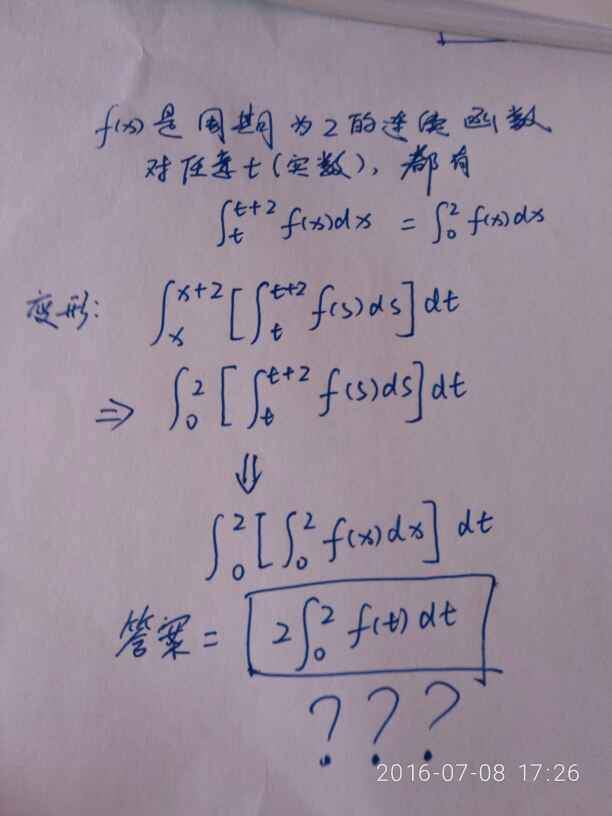 f(x)是周期为2的连续函数
对任意t(实数),都有
∫_t^{t+2} f(x)dx = ∫_0^2 f(x)dx
变形: ∫_x^{x+2} [∫_t^{t+2} f(s)ds] dt
⇒ ∫_0^2 [∫_t^{t+2} f(s)ds] dt
⇓
∫_0^2 [∫_0^2 f(x)dx] dt
答案 = 2∫_0^2 f(t)dt
???
2016-07-08 17:26